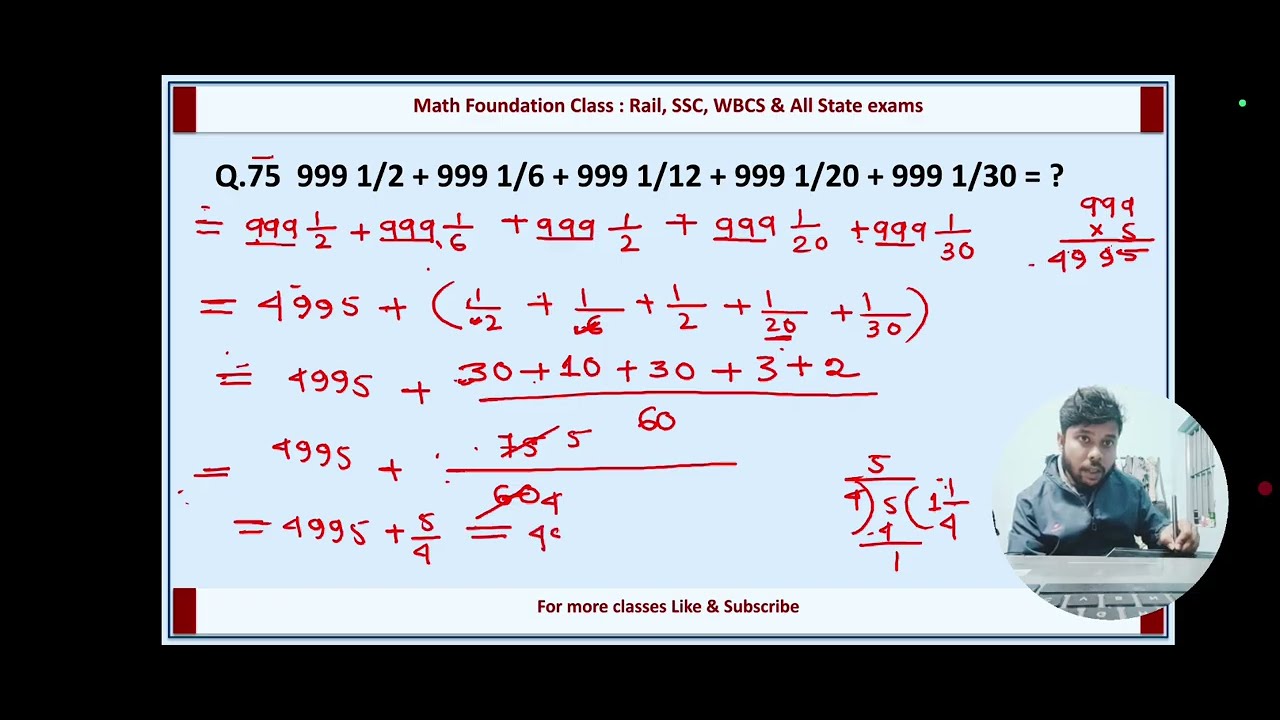 Math Foundation Class : Rail, SSC, WBCS & All State exams
Q.75 999 1/2 + 999 1/6 + 999 1/12 + 999 1/20 + 999 1/30 = ?
= 999 1/2 + 999 1/6 + 999 1/2 + 999 1/20 + 999 1/30
999
× 5
4995
= 4995 + (1/2 + 1/6 + 1/2 + 1/20 + 1/30)
= 4995 + 30+10+30+3+2
60
= 4995 + 75 5
60 4
= 4995 + 5/4 = 49
5
4)5(1 1/4
4
1
For more classes Like & Subscribe